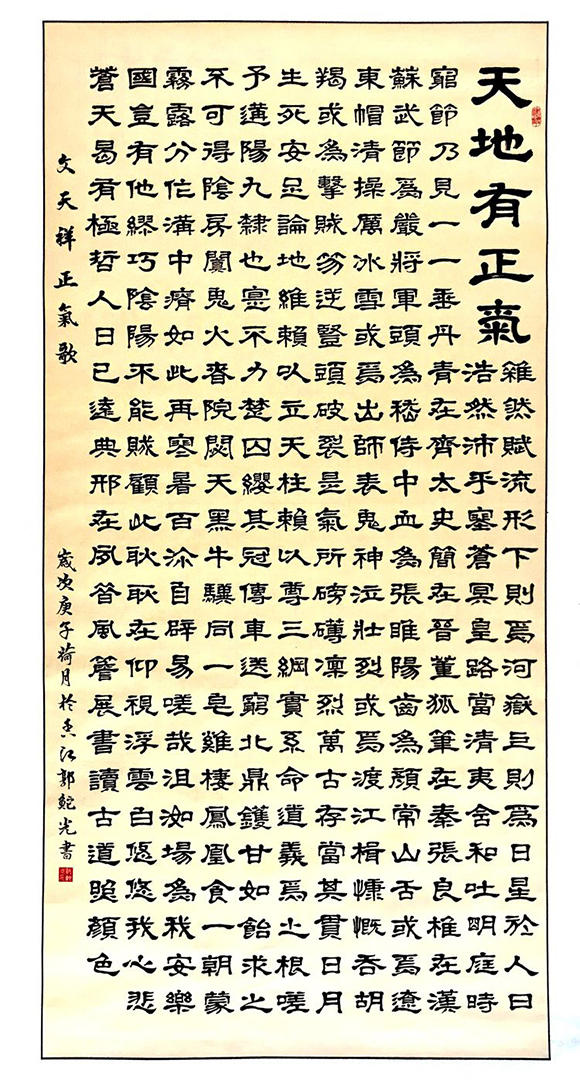 天地有正氣
雜然賦流形下則爲河嶽上則爲日星於人曰
浩然沛乎塞蒼冥皇路當清夷含和吐明庭時
窮節乃見一一垂丹青在齊太史簡在晉董狐筆在秦張良椎在漢
蘇武節爲嚴將軍頭為嵇侍中血為張睢陽齒為顏常山舌或爲遼
東帽清操厲冰雪或爲出師表鬼神泣壯烈或爲渡江楫慷慨吞胡
羯或為擊賊笏逆豎頭破裂是氣所磅礴凜烈萬古存當其貫日月
生死安足論地維賴以立天柱賴以尊三綱實系命道義爲之根嗟
予遘陽九隸也實不力楚囚纓其冠傳車送窮北鼎鑊甘如飴求之
不可得陰房闃鬼火春院閟天黑牛驥同一皂雞棲鳳凰食一朝蒙
霧露分作溝中瘠如此再寒暑百沴自辟易嗟哉沮洳場為我安樂
國豈有他繆巧陰陽不能賊顧此耿耿在仰視浮雲白悠悠我心悲
蒼天曷有極哲人日已遠典刑在夙昔風簷展書讀古道照顏色
文天祥正氣歌
歲次庚子荷月於香江郭光書